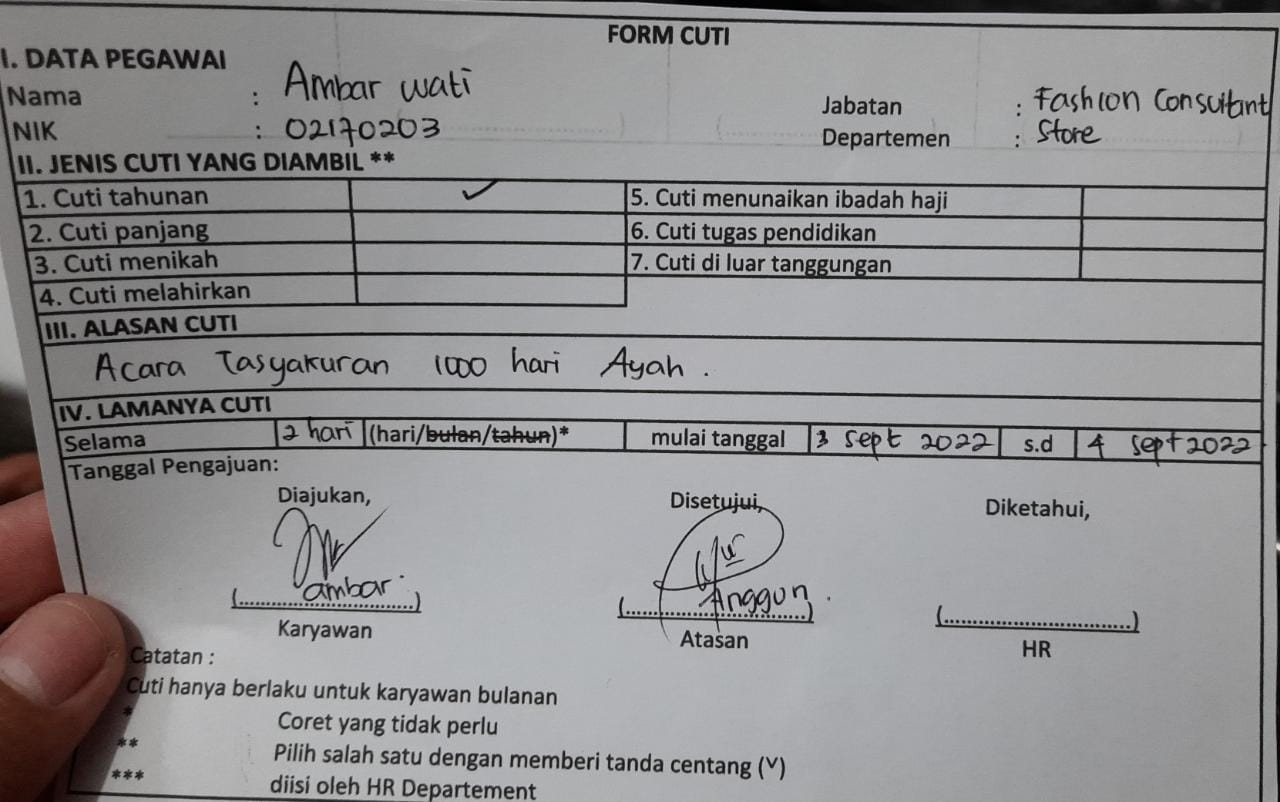 FORM CUTI
I. DATA PEGAWAI
Nama : Ambar wati Jabatan : Fashion Consultant
NIK : 02170203 Departemen : Store
II. JENIS CUTI YANG DIAMBIL **
1. Cuti tahunan ✓ 5. Cuti menunaikan ibadah haji
2. Cuti panjang 6. Cuti tugas pendidikan
3. Cuti menikah 7. Cuti di luar tanggungan
4. Cuti melahirkan
III. ALASAN CUTI
Acara Tasyakuran 1000 hari Ayah.
IV. LAMANYA CUTI
Selama 2 hari (hari/bulan/tahun)* mulai tanggal 3 Sept 2022 s.d 4 Sept 2022
Tanggal Pengajuan:
Diajukan, Disetujui, Diketahui,
ambar Anggun.
(..............................) (..............................) (..............................)
Karyawan Atasan HR
Catatan :
Cuti hanya berlaku untuk karyawan bulanan
* Coret yang tidak perlu
** Pilih salah satu dengan memberi tanda centang (√)
*** diisi oleh HR Departement